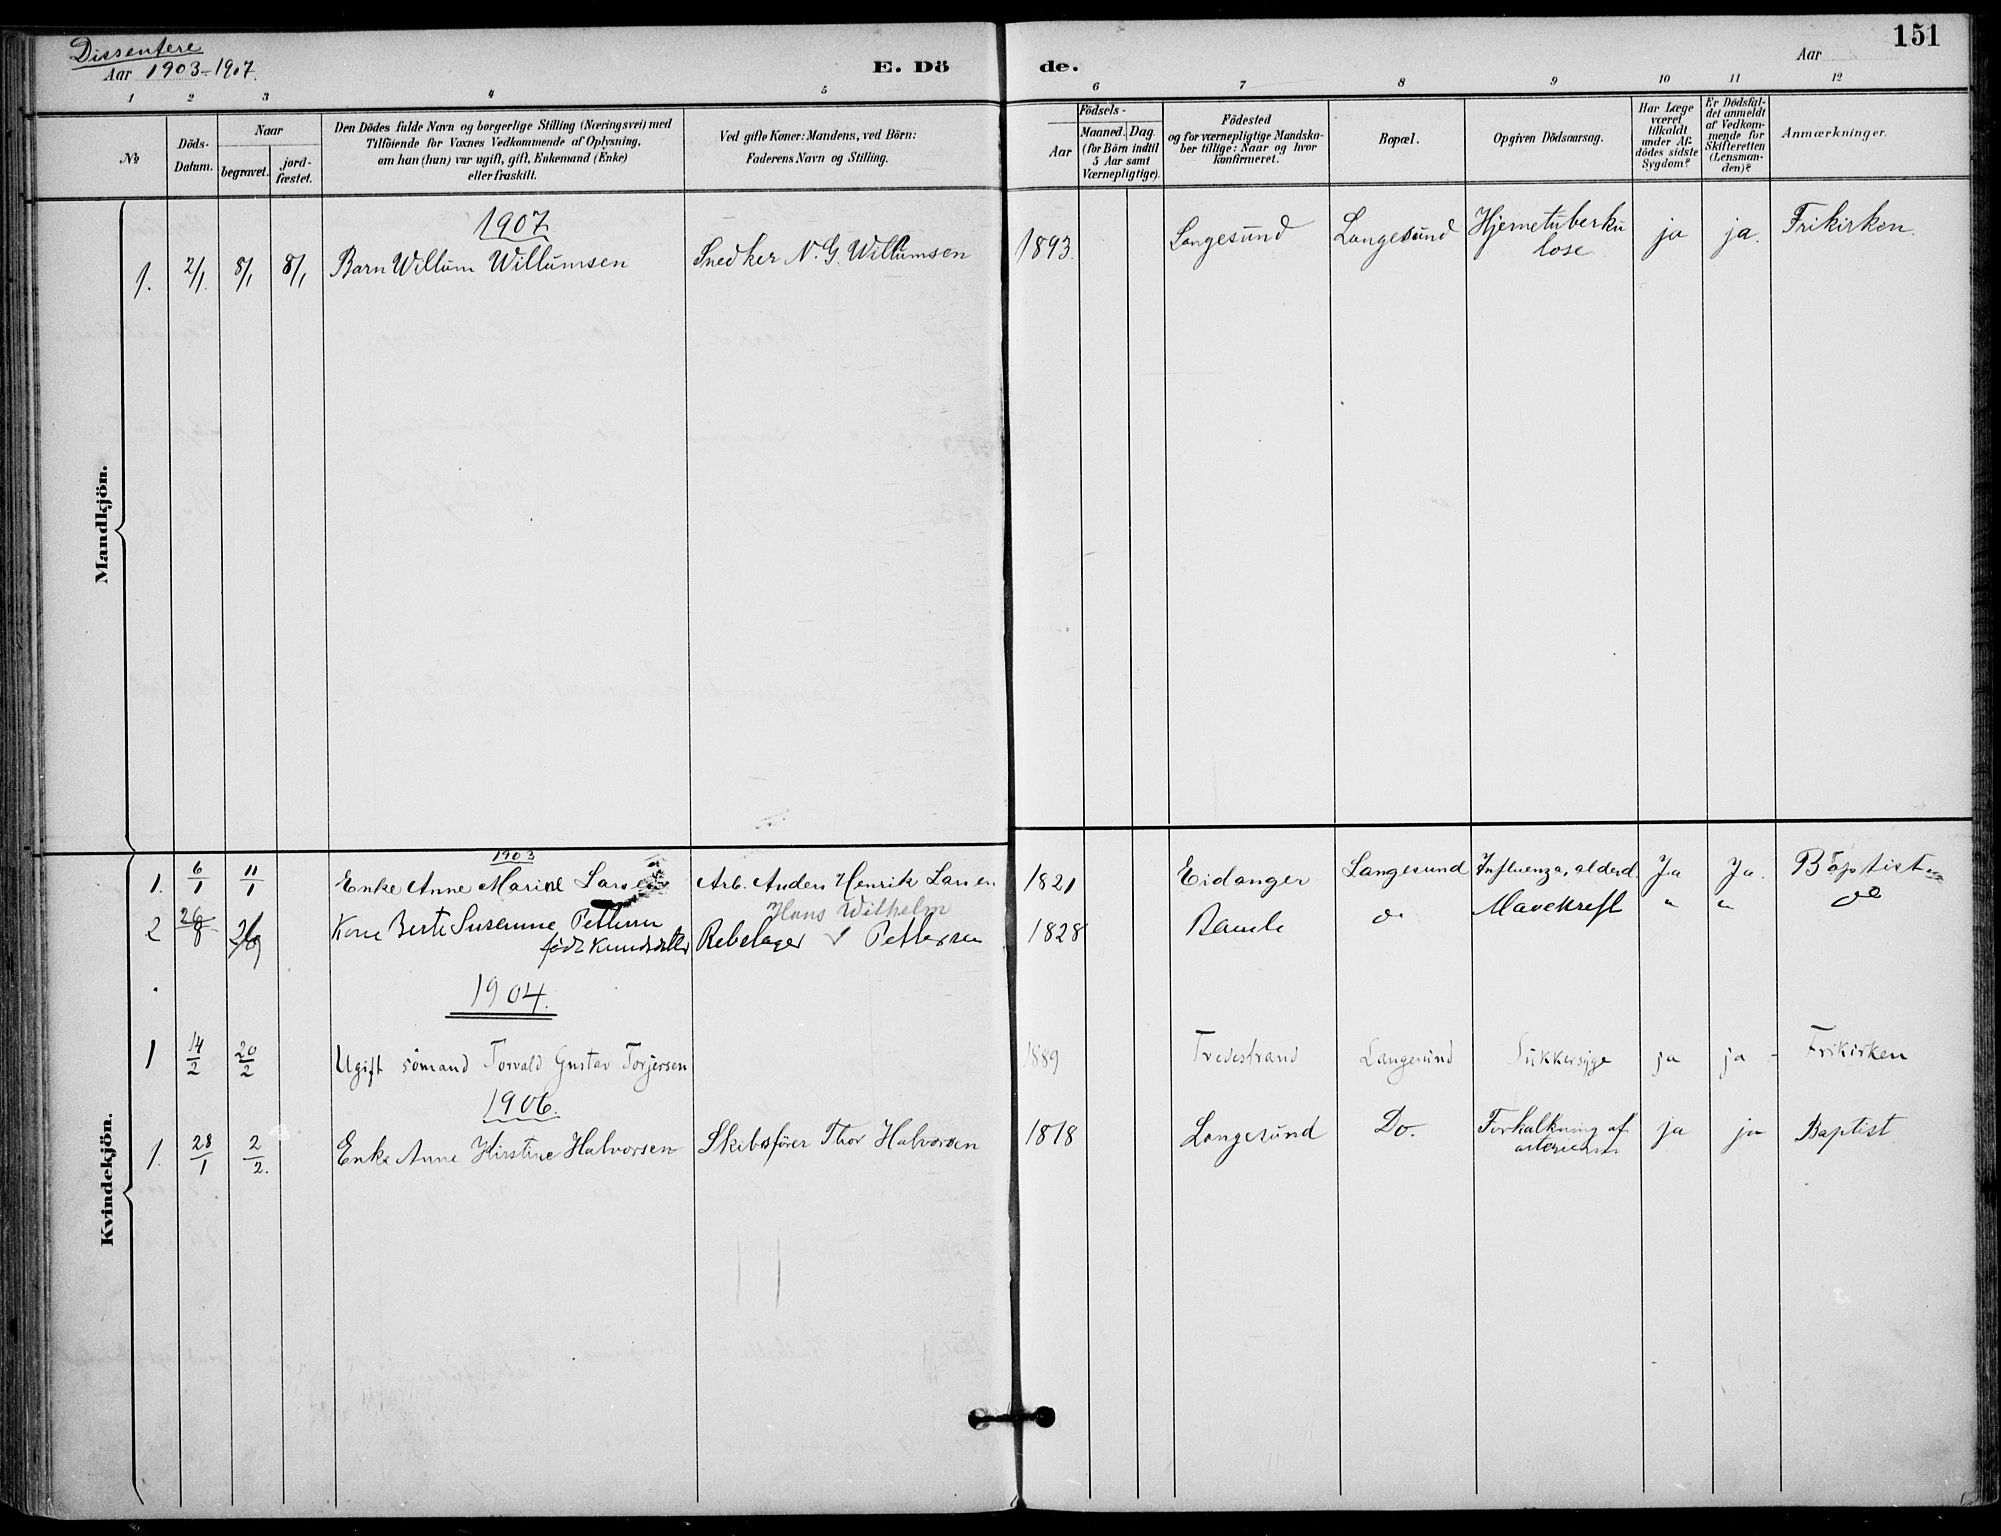 Dissentere
Aar 1903-1907.
E. Dö de.
Aar
151
1 2 3 4 5 6 7 8 9 10 11 12
№
Döds-Datum.
Naar
begravet.
jord-fæstet.
Den Dödes fulde Navn og borgerlige Stilling (Næringsvei) med
Tilföiende for Voxnes Vedkommende af Oplysning,
om han (hun) var ugift, gift, Enkemand (Enke)
eller fraskilt.
Ved gifte Koner: Mandens, ved Börn:
Faderens Navn og Stilling.
Födsels-
Aar
Maaned. Dag.
(for Börn indtil
5 Aar samt
Værnepligtige).
Födested
og for værnepligtige Mandska-
ber tillige: Naar og hvor
konfirmeret.
Bopæl.
Opgiven Dödsaarsag.
Har Læge
været
tilkaldt
under Af-
dödes sidste
Sygdom?
Er Dödsfal-
det anmeldt
af Vedkom-
mende for
Skifteretten
(Lensman-
den)?
Anmærkninger.
Mandkjön.
1907
1. 2/1. 8/1 8/1 Barn Willum Willumsen Snedker N. G. Willumsen 1893. Langesund Langesund Hjernetuberku
lose ja ja. Frikirken.
Kvindekjön.
1903
1. 6/1 11/1 Enke Anne Marine Larsen Arb. Anders Henrik Larsen 1821 Eidanger Langesund Influenza, alderd. Ja Ja. Baptist
Hans Wilhelm
2 26/8 Kone Berte Susanne Pettersen
født Knudsdatter Rebslager Pettersen 1828 Bamle do Mavekreft " " do
1904.
1 14/2 20/2 Ugift sömand Torvald Gustav Torjersen 1889 Tvedestrand Langesund Sukkersyge ja ja - Frikirken
1906.
1. 28/1 2/2. Enke Anne Kirstine Halvorsen Skibsfører Thor Halvorsen 1818 Langesund Do. Forkalkning af
arterierne ja ja Baptist